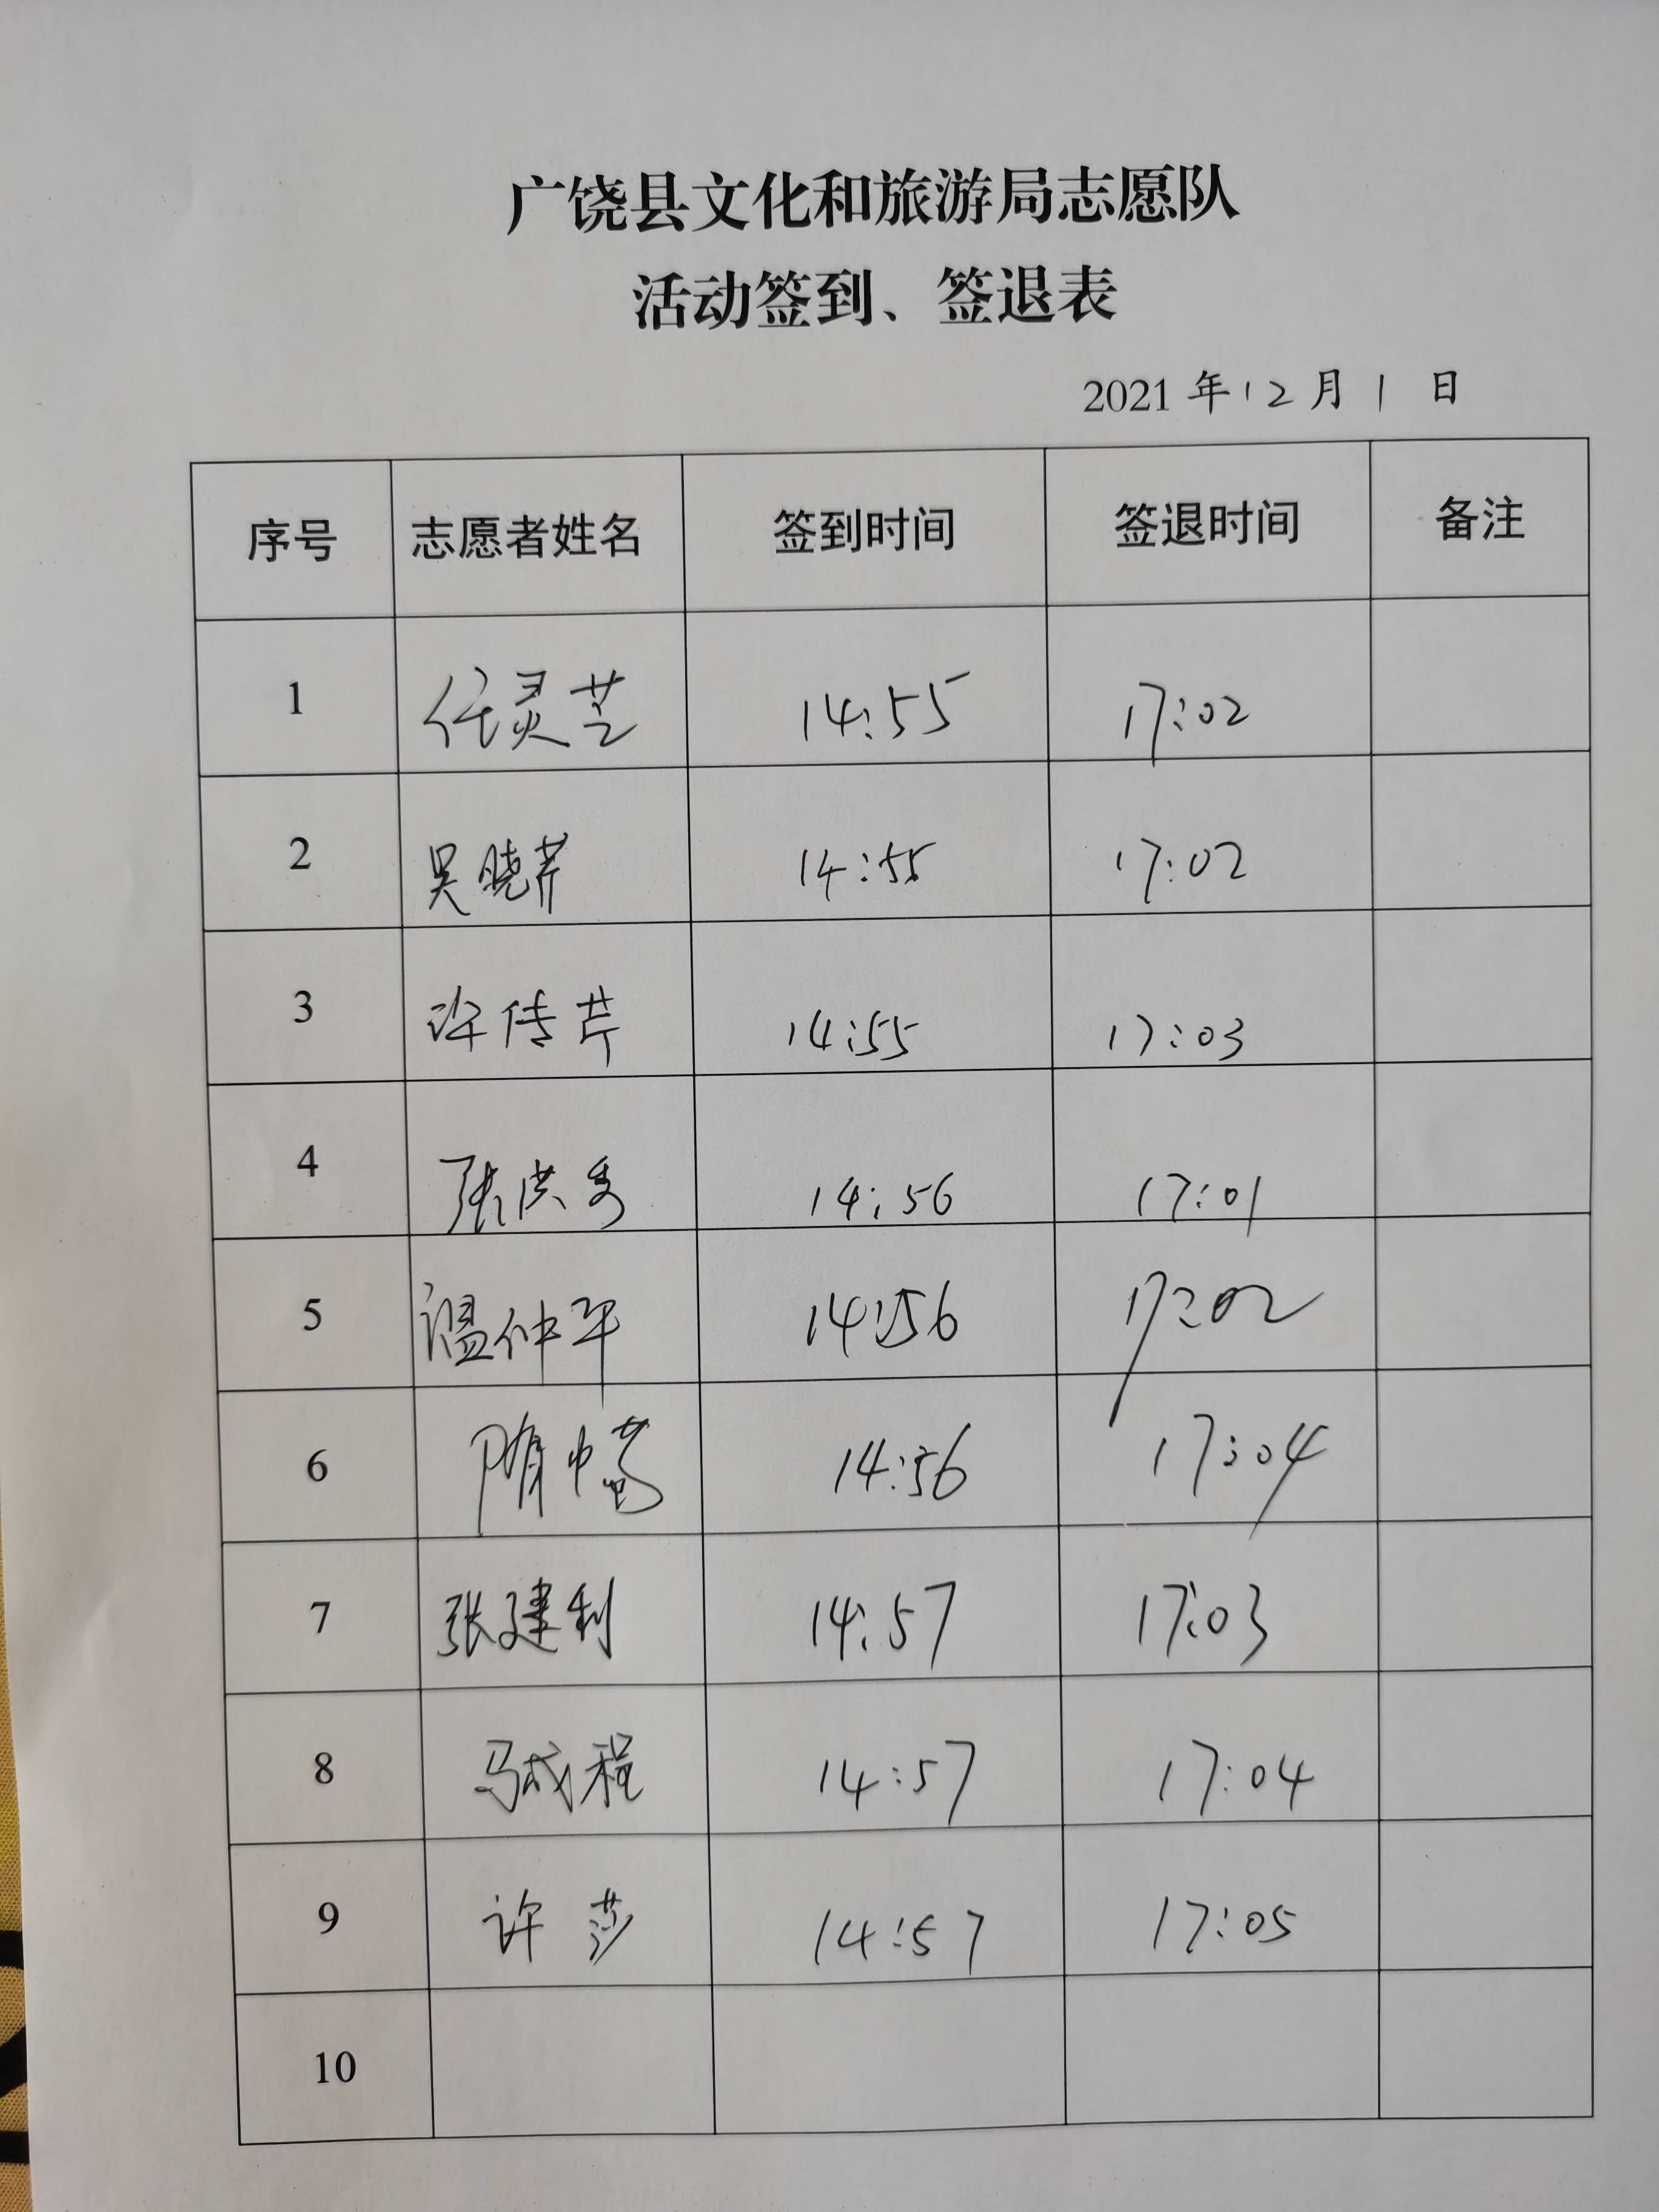 广饶县文化和旅游局志愿队
活动签到、签退表
2021 年 12 月 1 日
序号 志愿者姓名 签到时间 签退时间 备注
1 任灵芝 14:55 17:02
2 吴晓芹 14:55 17:02
3 许传芹 14:55 17:03
4 张洪秀 14:56 17:01
5 温仲平 14:56 17:02
6 隋 14:56 17:04
7 张建利 14:57 17:03
8 马成程 14:57 17:04
9 许莎 14:57 17:05
10